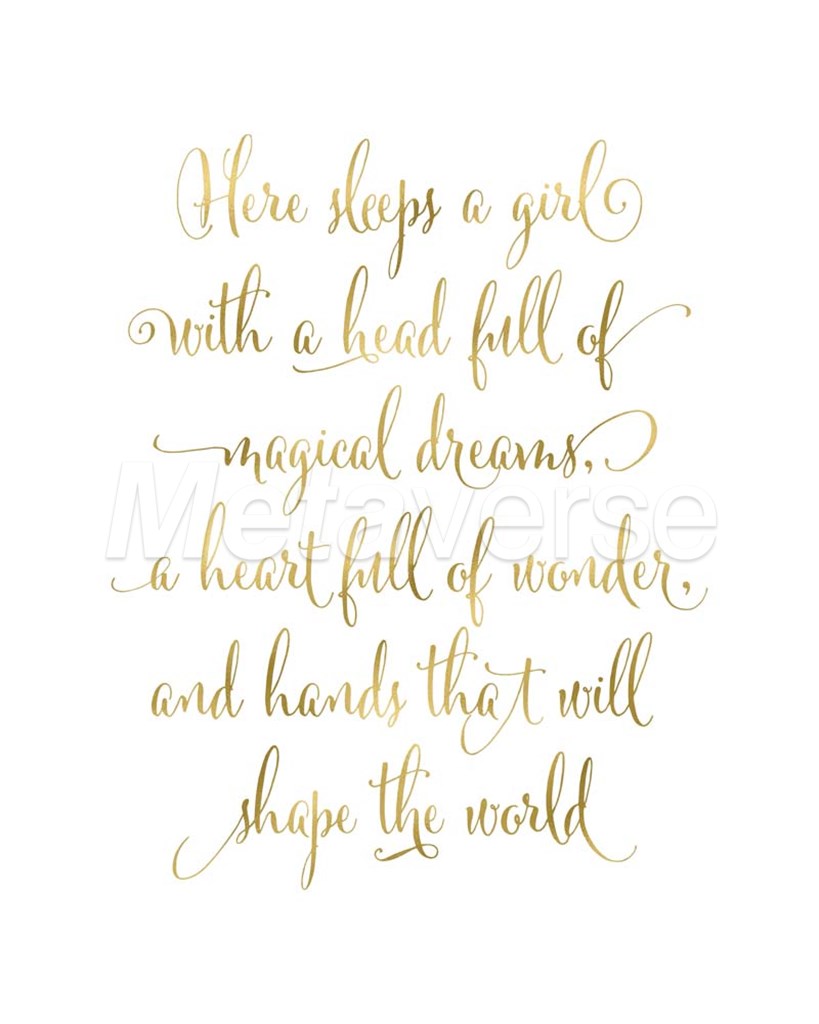 Here sleeps a girl
with a head full of
magical dreams,
Metaverse
a heart full of wonder,
and hands that will
shape the world